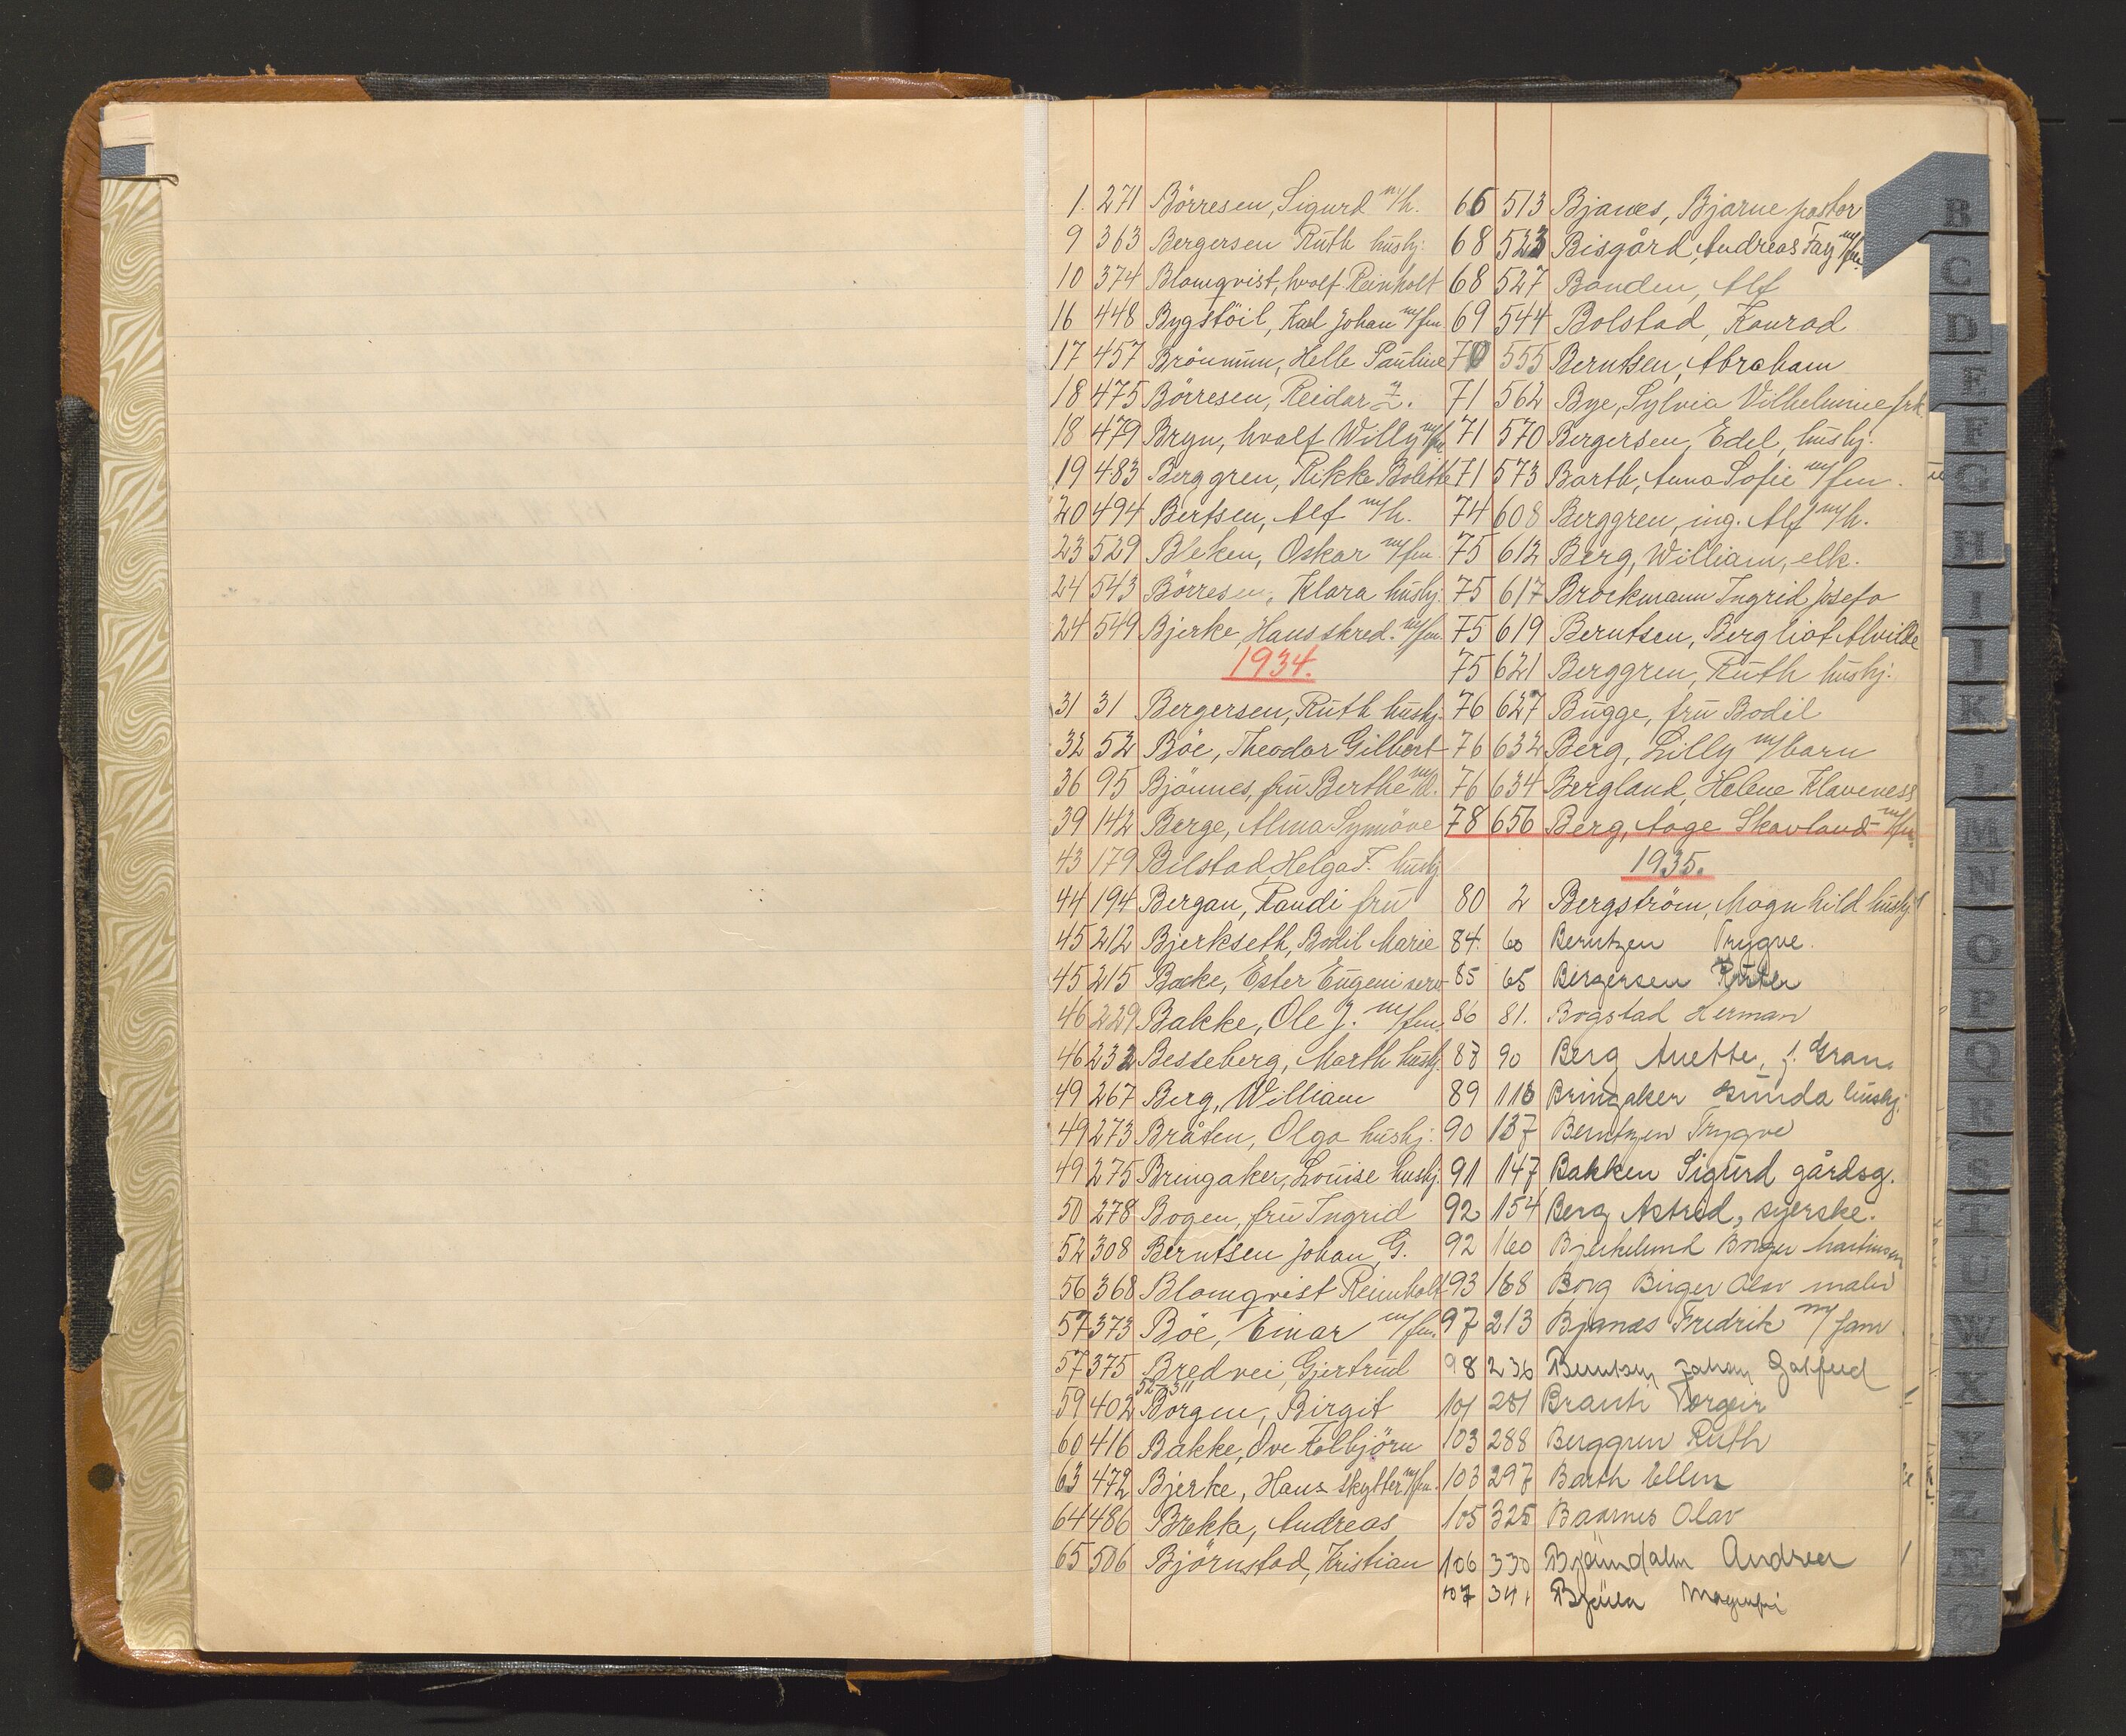 1. 271 Börresen, Sigurd m/h.
9 363 Bergersen Ruth hushj.
10 374 Blomqvist, hvalf. Reinholt
16 448 Bygstöil, Karl Johan m/fm.
17 457 Helle Pauline
18 475 Börresen, Reidar Z.
18 479 Bryn, hvalf Willy m/fm
19 483 Berggren, Rikke Bolette
20 494 Bertsen, Alf m/h.
23 529 Bleken, Oskar m/fm.
24 543 Börresen, Klara hushj.
24 549 Bjerke, Hans skred. m/fm.
1934.
31 31 Bergersen, Ruth hushj.
32 52 Böe, Theodor Gilbert
36 95 Bjönnes, fru Berthe
39 142 Berge, Alma Synnöve
43 179 Bilstad, Helga F. hushj
44 194 Bergan, Randi fru
45 212 Bjerkseth, Bodil Marie
45 215 Ester
46 229 Bakke, Ole J. m/fm.
46 232 Besseberg, Marth hushj.
49 267 Berg, William
49 273 Bråten, Olga hushj.
49 275 Bringaker, Louise hushj.
50 278 Bogen, fru Ingrid
52 308 Berntsen Johan G.
56 368 Blomqvist Reinholt
57 373 Böe, Einar m/fm.
57 375 Bredvei, Gjertrud
52-311
59 402 Borgen, Birgit
60 416 Bakke, Ove Kolbjörn
63 472 Bjerke, Hans skytter m/fm.
64 486 Brekke, Andreas
65 506 Björnstad, Kristian
66 513 Bjanes, Bjarne pastor
68 523 Bisgård, Andreas Fay m/fm.
68 527 Banden, Alf
69 544 Bolstad, Konrad
70 555 Berntsen, Abraham
71 562 Bye, Sylvia Vilhelmine frk.
71 570 Bergersen, Edel, hushj.
71 573 Barth, Anna Sofie m/fm.
74 608 Berggren, ing. Alf m/h.
75 612 Berg, William, elk.
75 617 Brockmann Ingrid Josefa
75 619 Berntsen, Bergliot Alvilde
75 621 Berggren, Ruth hushj.
76 627 Bugge, fru Bodil
76 632 Berg, Lilly m/barn
76 634 Bergland, Helene Klaveness
78 656 Berg, Aage Skavland m/fm.
1935.
80 2 Bergström, Magnhild hushj.
84. 60 Berntzen Trygve.
85 65 Bergersen
86 81. Bogstad Herman
88 90 Berg Anette, f. Gran.
89 118 Bringaker Gunda hushj.
90 137 Berntzen Trygve
91 147 Bakken Sigurd gårdsg.
92 154 Berg Astrid, syerske.
92 160 Bjerkelund Birger Martinsen
93 168 Borg Birger Olav maler
97 213 Bjanæs Fredrik m/fam
98 236 Johan
101 281 Torgeir
103 288 Berggren Ruth
103 297 Barth Ellen
105 325 Baarnes Olav
106 330 Andreas
107 341
B
C
D
E
F
G
H
I
J
K
L
M
N
O
P
Q
R
S
T
U
W
X
Y
Z
Æ
Ø